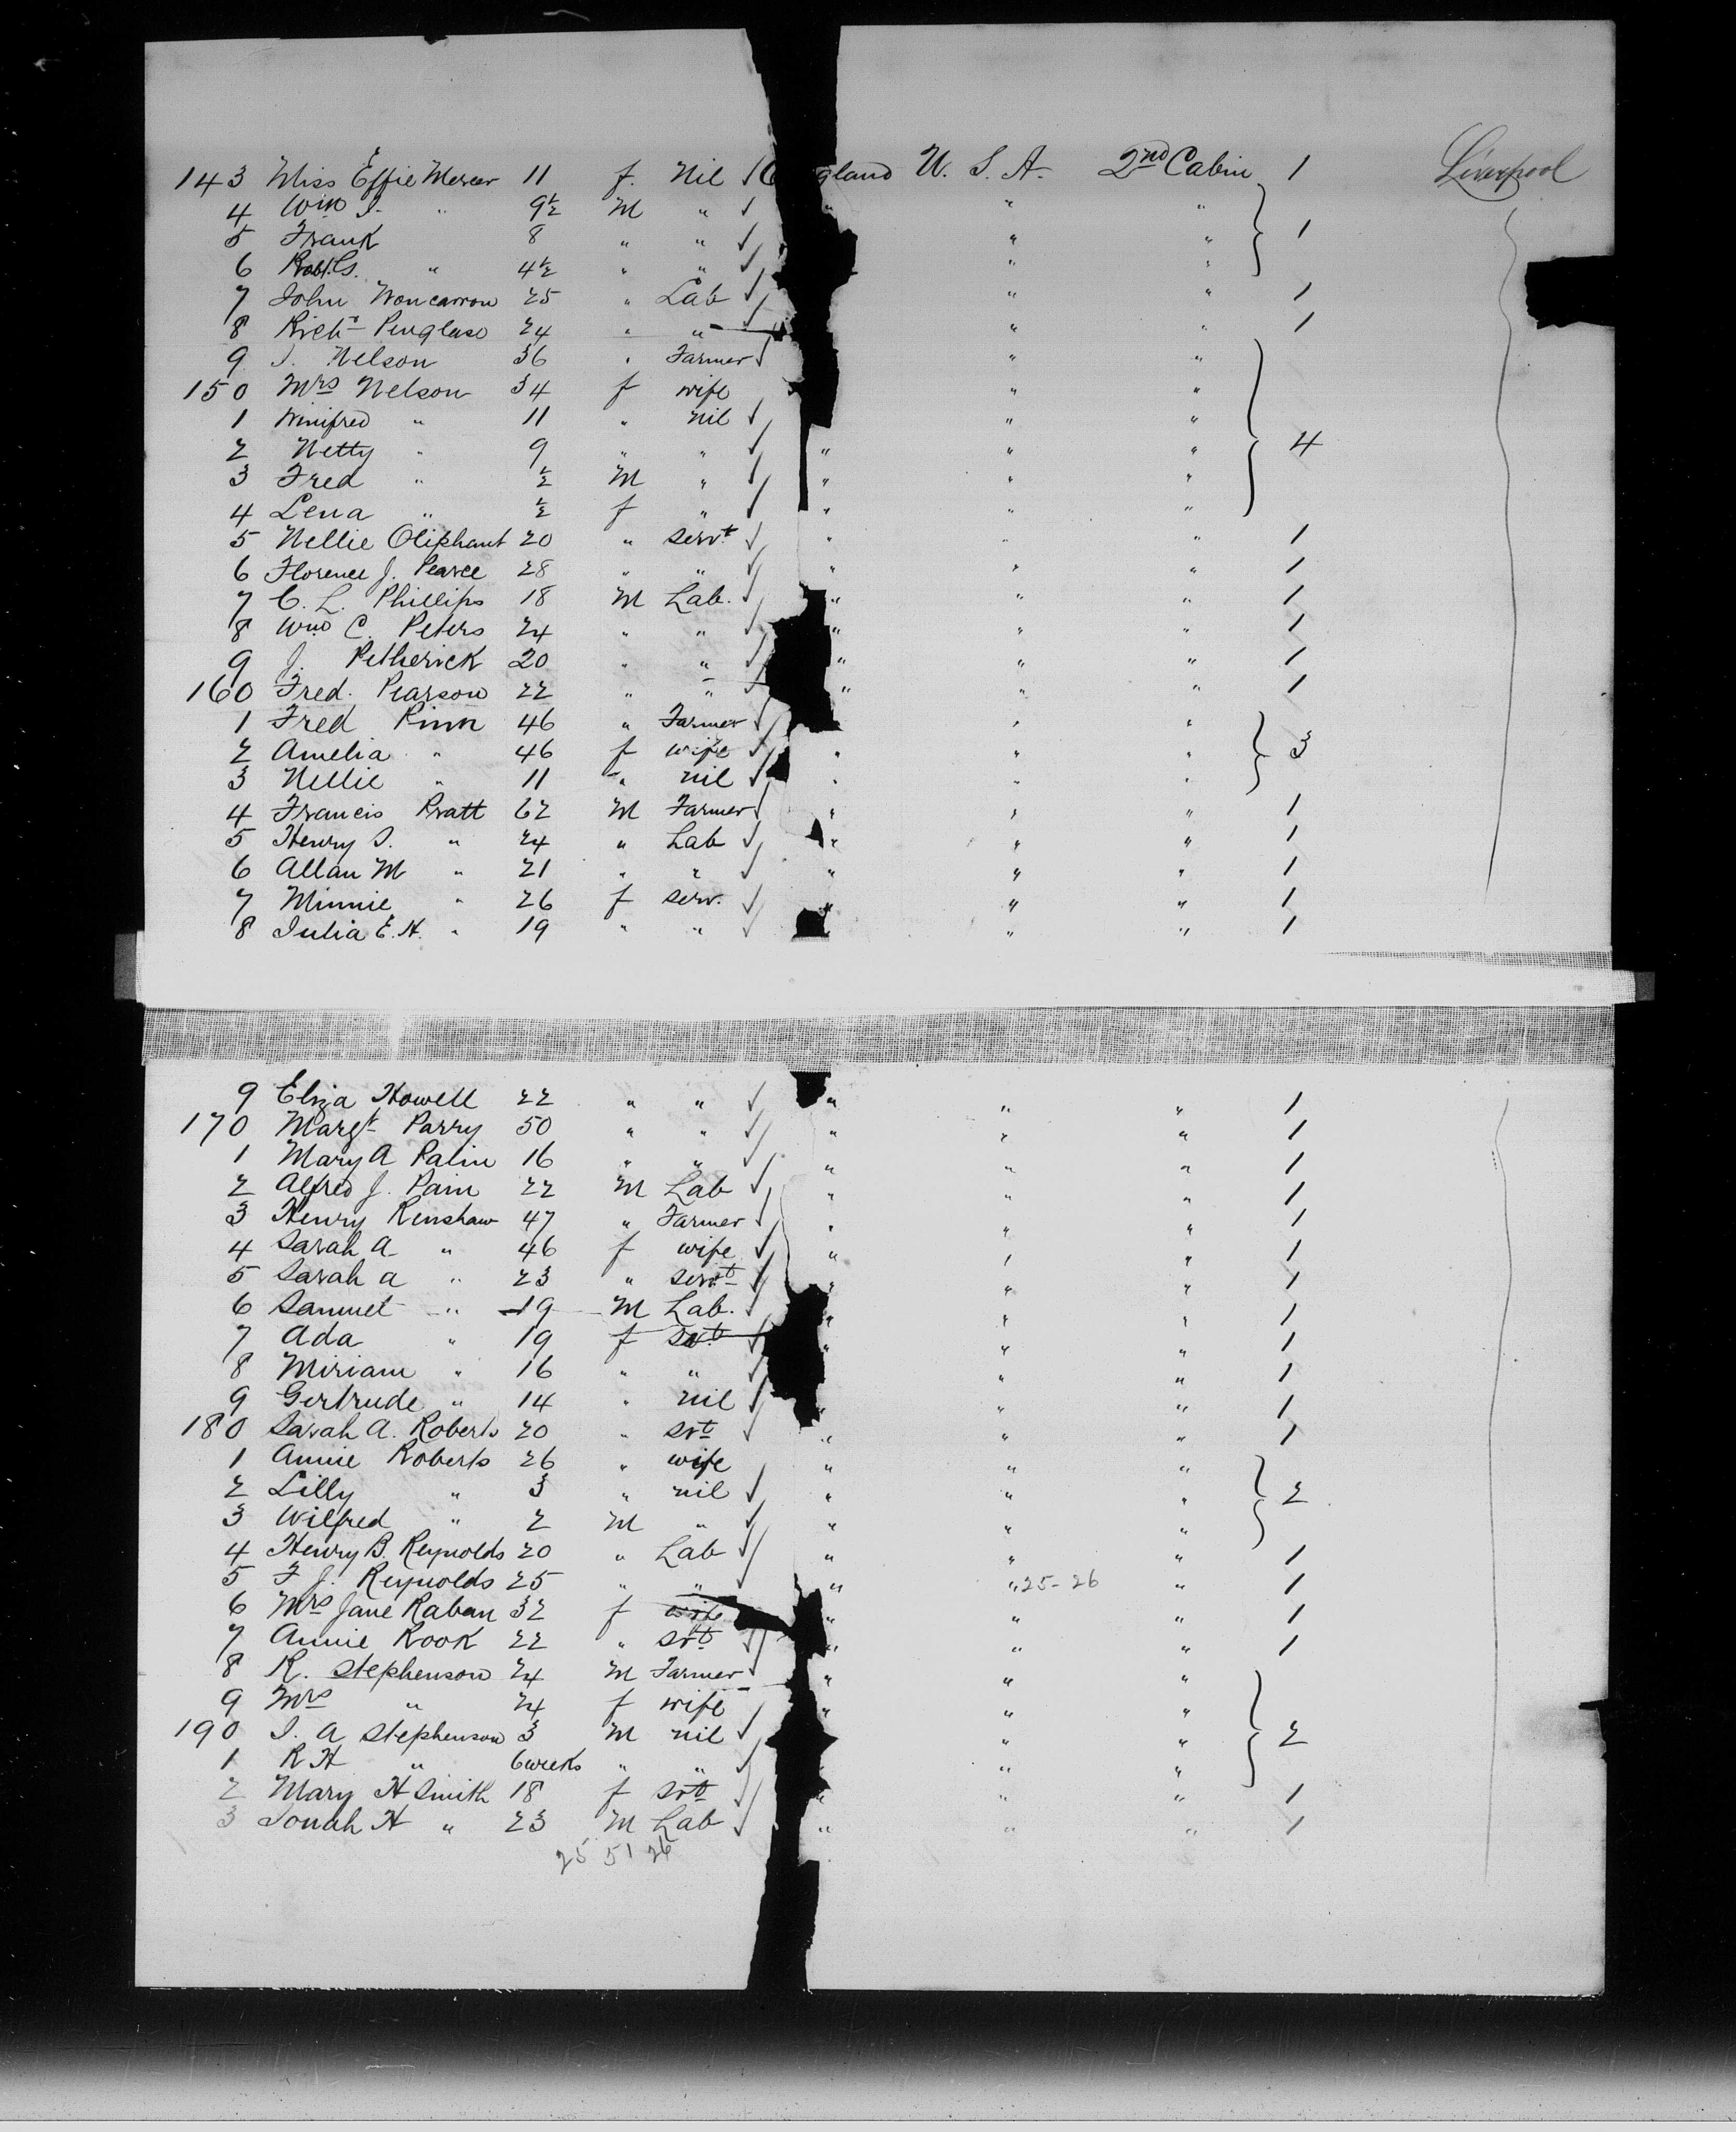 143 Miss Effie Mercer 11 f. Nil England U. S. A. 2nd Cabin 1 Liverpool
4 Wm J. " 9½ M " " " "
5 Frank 8 " " " " 1
6 Robt. G. " 4½ " " " "
7 John 25 " Lab " " 1
8 Richd Penglase 24 " " " " 1
9 J. Nelson 36 " Farmer " "
150 Mrs Nelson 34 f wife " "
1 Winifred " 11 " nil " "
2 Netty " 9 " " " " " 4
3 Fred " ½ M " " " "
4 Lena " ½ f " " " "
5 Nellie Oliphant 20 " servt " " " 1
6 Florence J. Pearce 28 " " " " " 1
7 C. L. Phillips 18 M Lab. " " " 1
8 Wm C. Peters 24 " " " " " 1
9 J. Petherick 20 " " " " " 1
160 Fred. Pearson 22 " " " " " 1
1 Fred Pinn 46 " Farmer " "
2 Amelia " 46 f wife " " " 3
3 Nellie " 11 " nil " " "
4 Francis Pratt 62 M Farmer " " " 1
5 Henry J. " 24 " Lab " " " 1
6 Allan M " 21 " " " " " 1
7 Minnie " 26 f serv. " " " 1
8 Julia E. H. " 19 " " " " 1
9 Eliza Howell 22 " " " " " 1
170 Margt Parry 50 " " " " " 1
1 Mary A Palin 16 " " " " " 1
2 Alfred J. Pain 22 M Lab " " " 1
3 Henry Renshaw 47 " Farmer " " " 1
4 Sarah A " 46 f wife " " " 1
5 Sarah a " 23 " servt " " " 1
6 Samuel " 19 M Lab. " " " 1
7 Ada " 19 f svt " " " 1
8 Miriam " 16 " " " " 1
9 Gertrude " 14 " nil " " " 1
180 Sarah A. Roberts 20 " svt " " " 1
1 Annie Roberts 26 " wife " " "
2 Lilly " 3 " nil " " " 2
3 Wilfred " 2 M " " " "
4 Henry B. Reynolds 20 " Lab " " " 1
5 F J. Reynolds 25 " " " " 25-26 " 1
6 Mrs Jane Raban 32 f wife " " " 1
7 Annie Rook 22 " svt " " " 1
8 R. Stephenson 24 M Farmer " " "
9 Mrs " 24 f wife " " "
190 J. A Stephenson 3 M nil " " 2
1 R H " 6 weeks " " " "
2 Mary H Smith 18 f svt " " " 1
3 Jonah H " 23 M Lab " " " 1
25 51 26